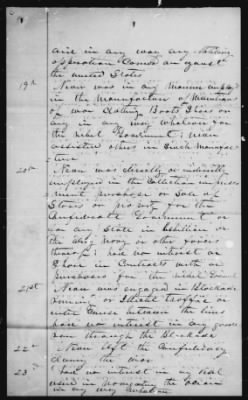 and in any way any
opperation Carried on against
the united States
19th Never was in any manner employed
in the Manufacture of Munitions
of war Clothing Boots Shoes or
any in any way whatever for
the rebel Government nor
assisted others in Such Manufac
ture
20th Never was directly or indirectly
employed in the Collection impress
ment purchase or Sale of
Stores or for the
Confederate Government or
for any State in rebellion or
the army Navy or other forces
thereof had no interest or
Share in Contracts with or
for the rebel
21st Never was engaged in Blockade
Running or Illicit traffic or
inter Course between the lines
had no interest in any goods
run through the Blockade
22nd Never left the Confederacy
during the war
23 had no interest in any
used in Navigating the
in any way